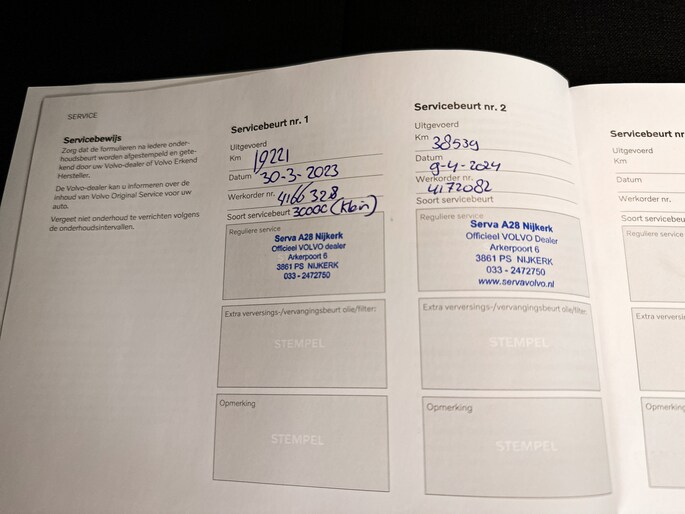 SERVICE
Servicebewijs
Zorg dat de formulieren na iedere onder-
houdsbeurt worden afgestempeld en gete-
kend door uw Volvo-dealer of Volvo Erkend
Hersteller.
De Volvo-dealer kan u informeren over de
inhoud van Volvo Original Service voor uw
auto.
Vergeet niet onderhoud te verrichten volgens
de onderhoudsintervallen.
Servicebeurt nr. 1
Uitgevoerd
Km 19221
Datum 30-3-2023
Werkorder nr. 4166328
Soort servicebeurt 30000 (klein)
Reguliere service
Serva A28 Nijkerk
Officieel VOLVO dealer
Arkerpoort 6
3861 PS NIJKERK
033 - 2472750
Extra verversings-/vervangingsbeurt olie/filter:
STEMPEL
Opmerking
STEMPEL
Servicebeurt nr. 2
Uitgevoerd
Km 38539
Datum
9-4-2024
Werkorder nr.
4172082
Soort servicebeurt
Reguliere service
Serva A28 Nijkerk
Officieel VOLVO Dealer
Arkerpoort 6
3861 PS NIJKERK
033 - 2472750
www.servavolvo.nl
Extra verversings-/vervangingsbeurt olie/filter
STEMPEL
Opmerking
STEMPEL
Servicebeurt nr
Uitgevoerd
Km
Datum
Werkorder nr.
Soort servicebeu
Reguliere service
Extra verversi
Opmerking